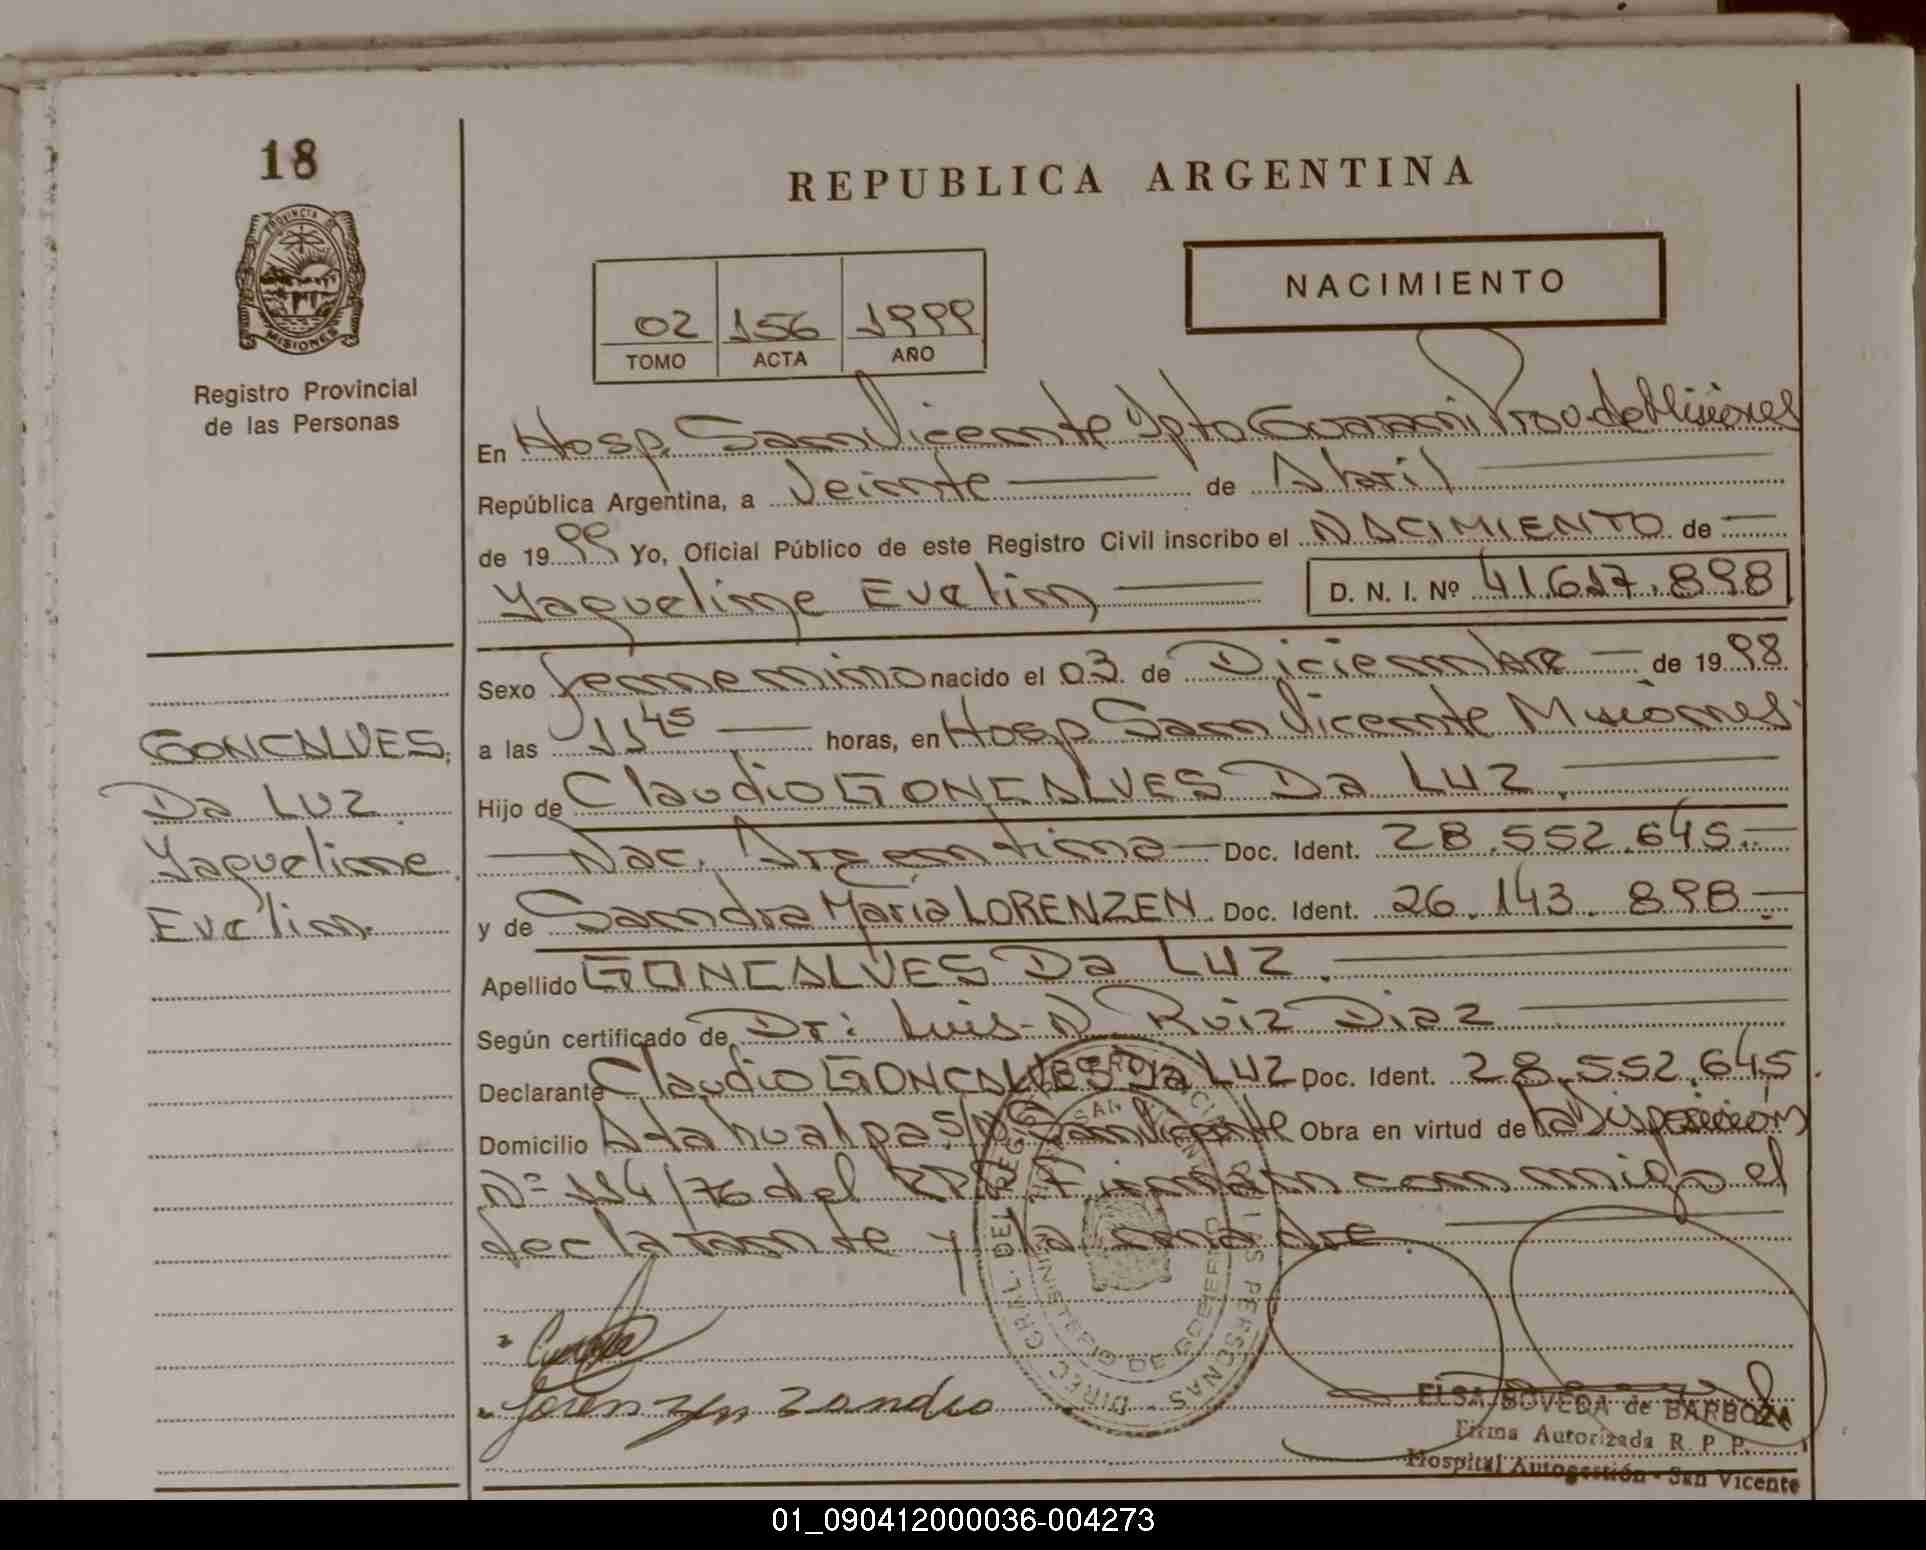 18
PROVINCIA DE
MISIONES
Registro Provincial
de las Personas
GONCALVES,
Da LUZ
Yaqueline
Evelin.
REPUBLICA ARGENTINA
NACIMIENTO
02 156 1999
TOMO ACTA AÑO
En Hosp. San Vicente Dpto Guaraní Prov. de Misiones
República Argentina, a Veinte de Abril
de 1999 Yo, Oficial Público de este Registro Civil inscribo el NACIMIENTO de
Yaqueline Evelin D. N. I. Nº 41.617.898
Sexo femenino nacido el 03 de Diciembre de 1998
a las 11 45 horas, en Hosp San Vicente Misiones
Hijo de Claudio GONCALVES Da LUZ.
Nac. Argentina Doc. Ident. 28.552.645
y de Sandra María LORENZEN Doc. Ident. 26.143.898
Apellido GONCALVES Da LUZ.
Según certificado de Dr: Luis N Ruiz Diaz
Declarante Claudio GONCALVES Da LUZ Doc. Ident. 28.552.645
Domicilio Atahualpa S/Nº San Vicente Obra en virtud de la Disposición
Nº 114/76 del RPP. Firman conmigo el
declarante y la madre.
Lorenzen Sandra
ELSA BOVEDA de BARBOZA
Firma Autorizada R. P. P.
Hospital Autogestión - San Vicente
01_090412000036-004273